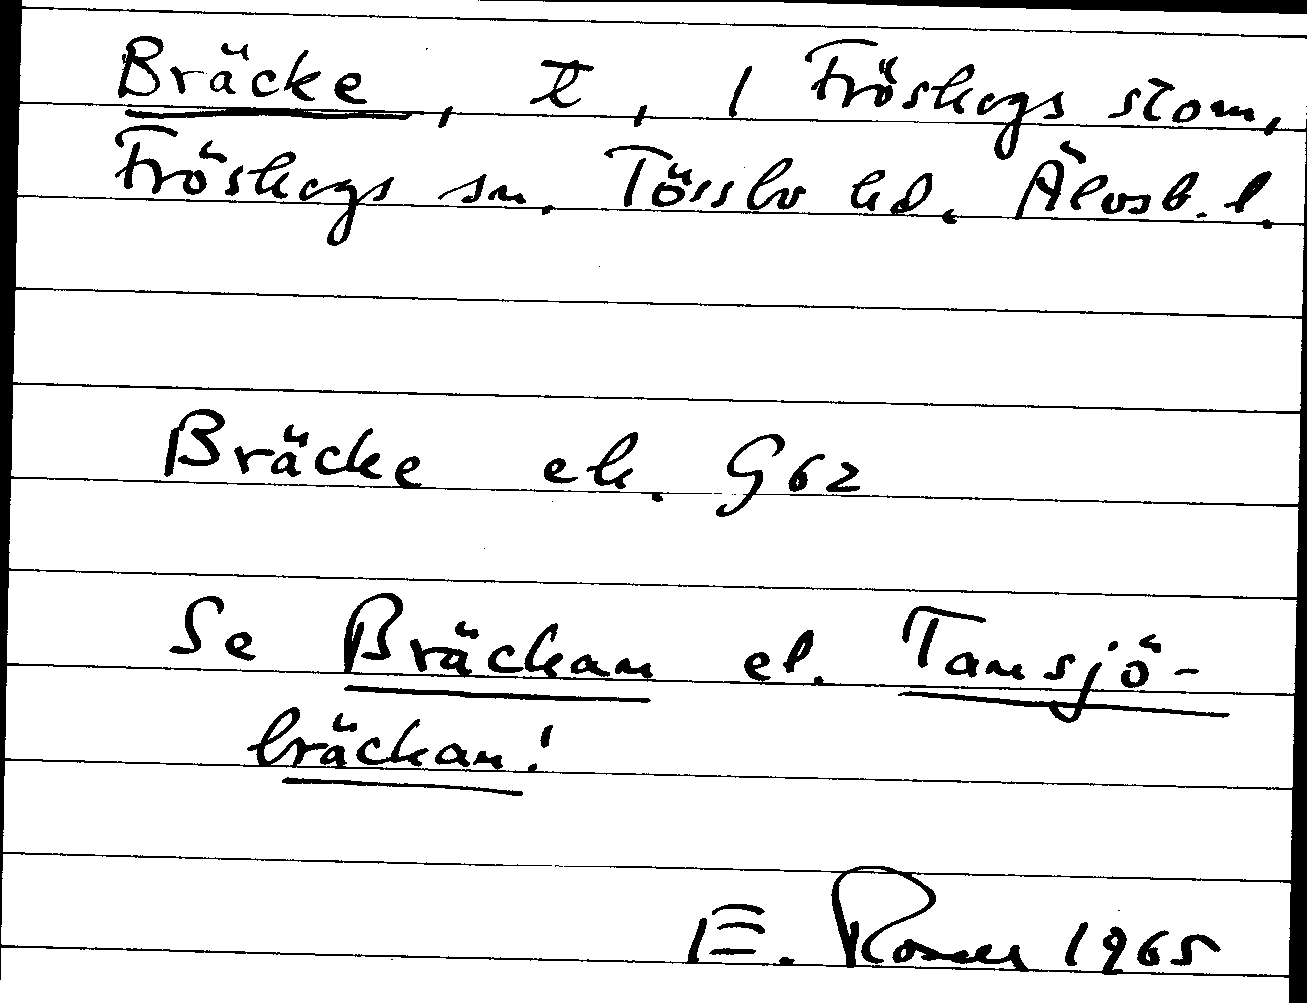 Bräcke, t, 1 Fröskogs stom,
Fröskogs sn. Tössbo hd. Älvsb. l.
Bräcke ek. G62
Se Bräckan el. Tansjö-
bräckan!
E. 1965